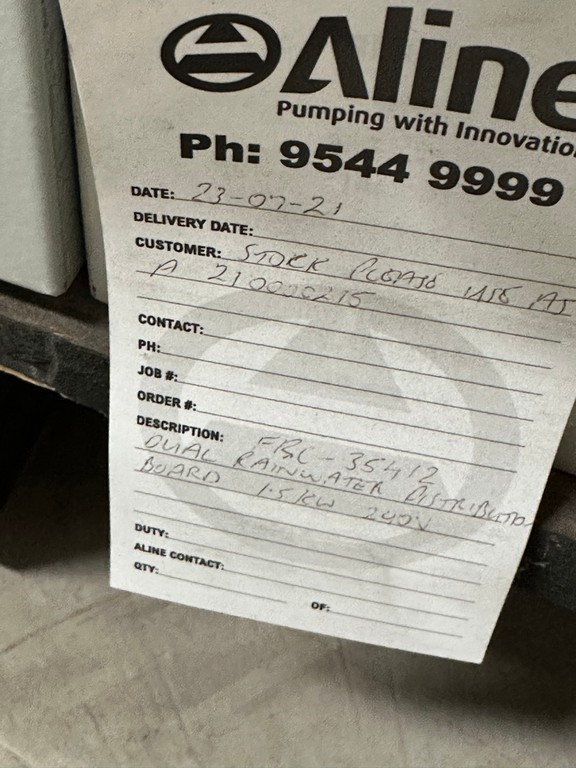 Aline
Pumping with Innovation
Ph: 9544 9999
DATE: 23-07-21
DELIVERY DATE:
CUSTOMER: STOCK PLEASE USE AS
A 210000215
CONTACT:
PH:
JOB #:
ORDER #:
DESCRIPTION: 35412
DUAL RAINWATER DISTRIBUTION
BOARD 1.5KW 240V
DUTY:
ALINE CONTACT:
QTY:
OF: